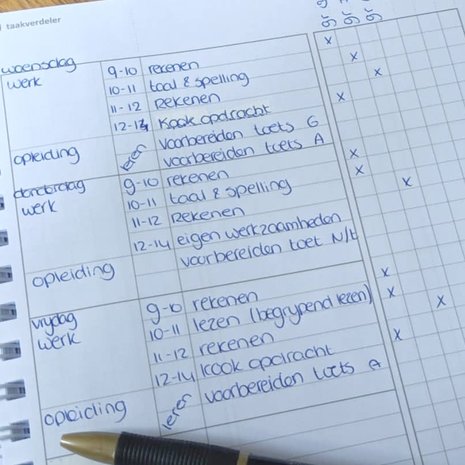 taakverdeler
woensdag
werk 9-10 rekenen x
10-11 taal & spelling x
11-12 Rekenen x
12-14 Kook opdracht x
opleiding leren voorbereiden toets G
voorbereiden toets A
donderdag
werk 9-10 rekenen x
10-11 taal & spelling x
11-12 Rekenen x
12-14 eigen werkzaamheden
opleiding voorbereiden toet N/t
vrijdag
werk 9-10 rekenen x
10-11 lezen (begrijpend lezen) x
11-12 rekenen x
12-14 kook opdracht x
opleiding leren voorbereiden toets A